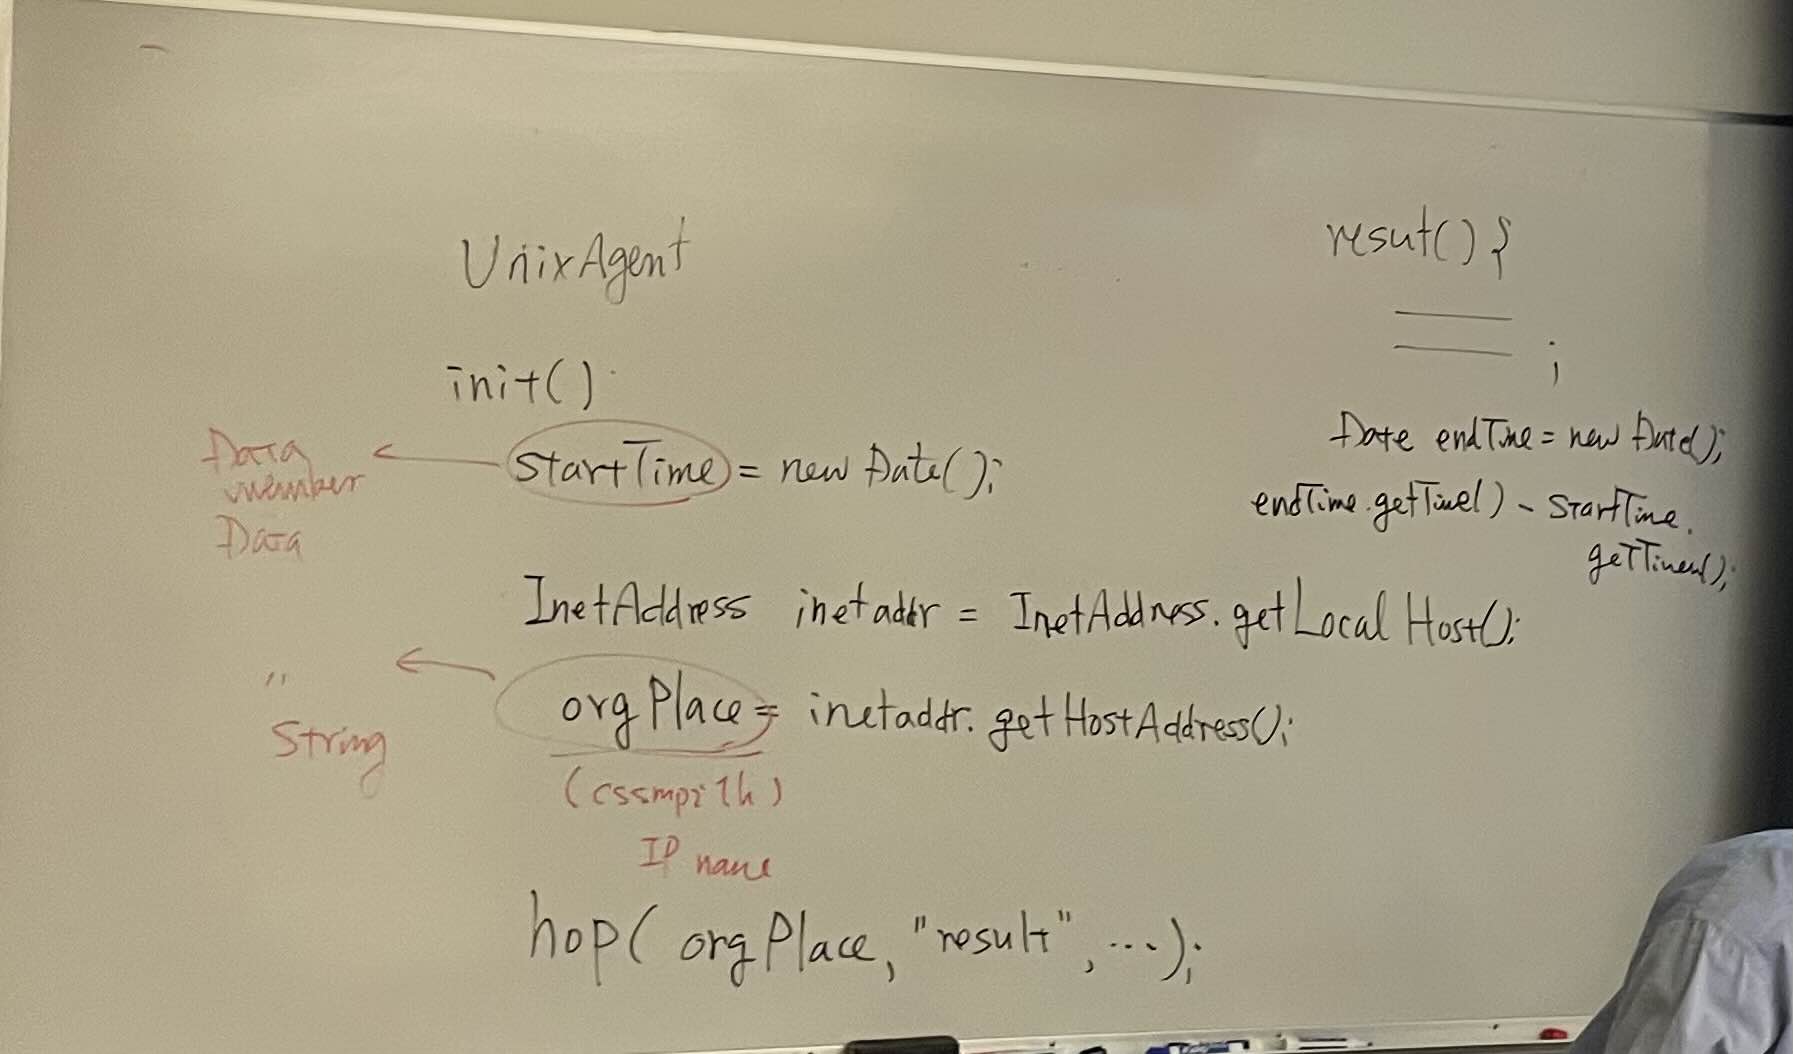 UnixAgent
init()
Data
member
Data
startTime = new Date();
InetAddress inetaddr = InetAddress.getLocalHost();
"
String
orgPlace = inetaddr.getHostAddress();
(cssmpi1h)
IP name
hop( orgPlace, "result", ...);
resut() {
;
Date endTime = new Date();
endTime.getTime() - StartTime.
getTime();